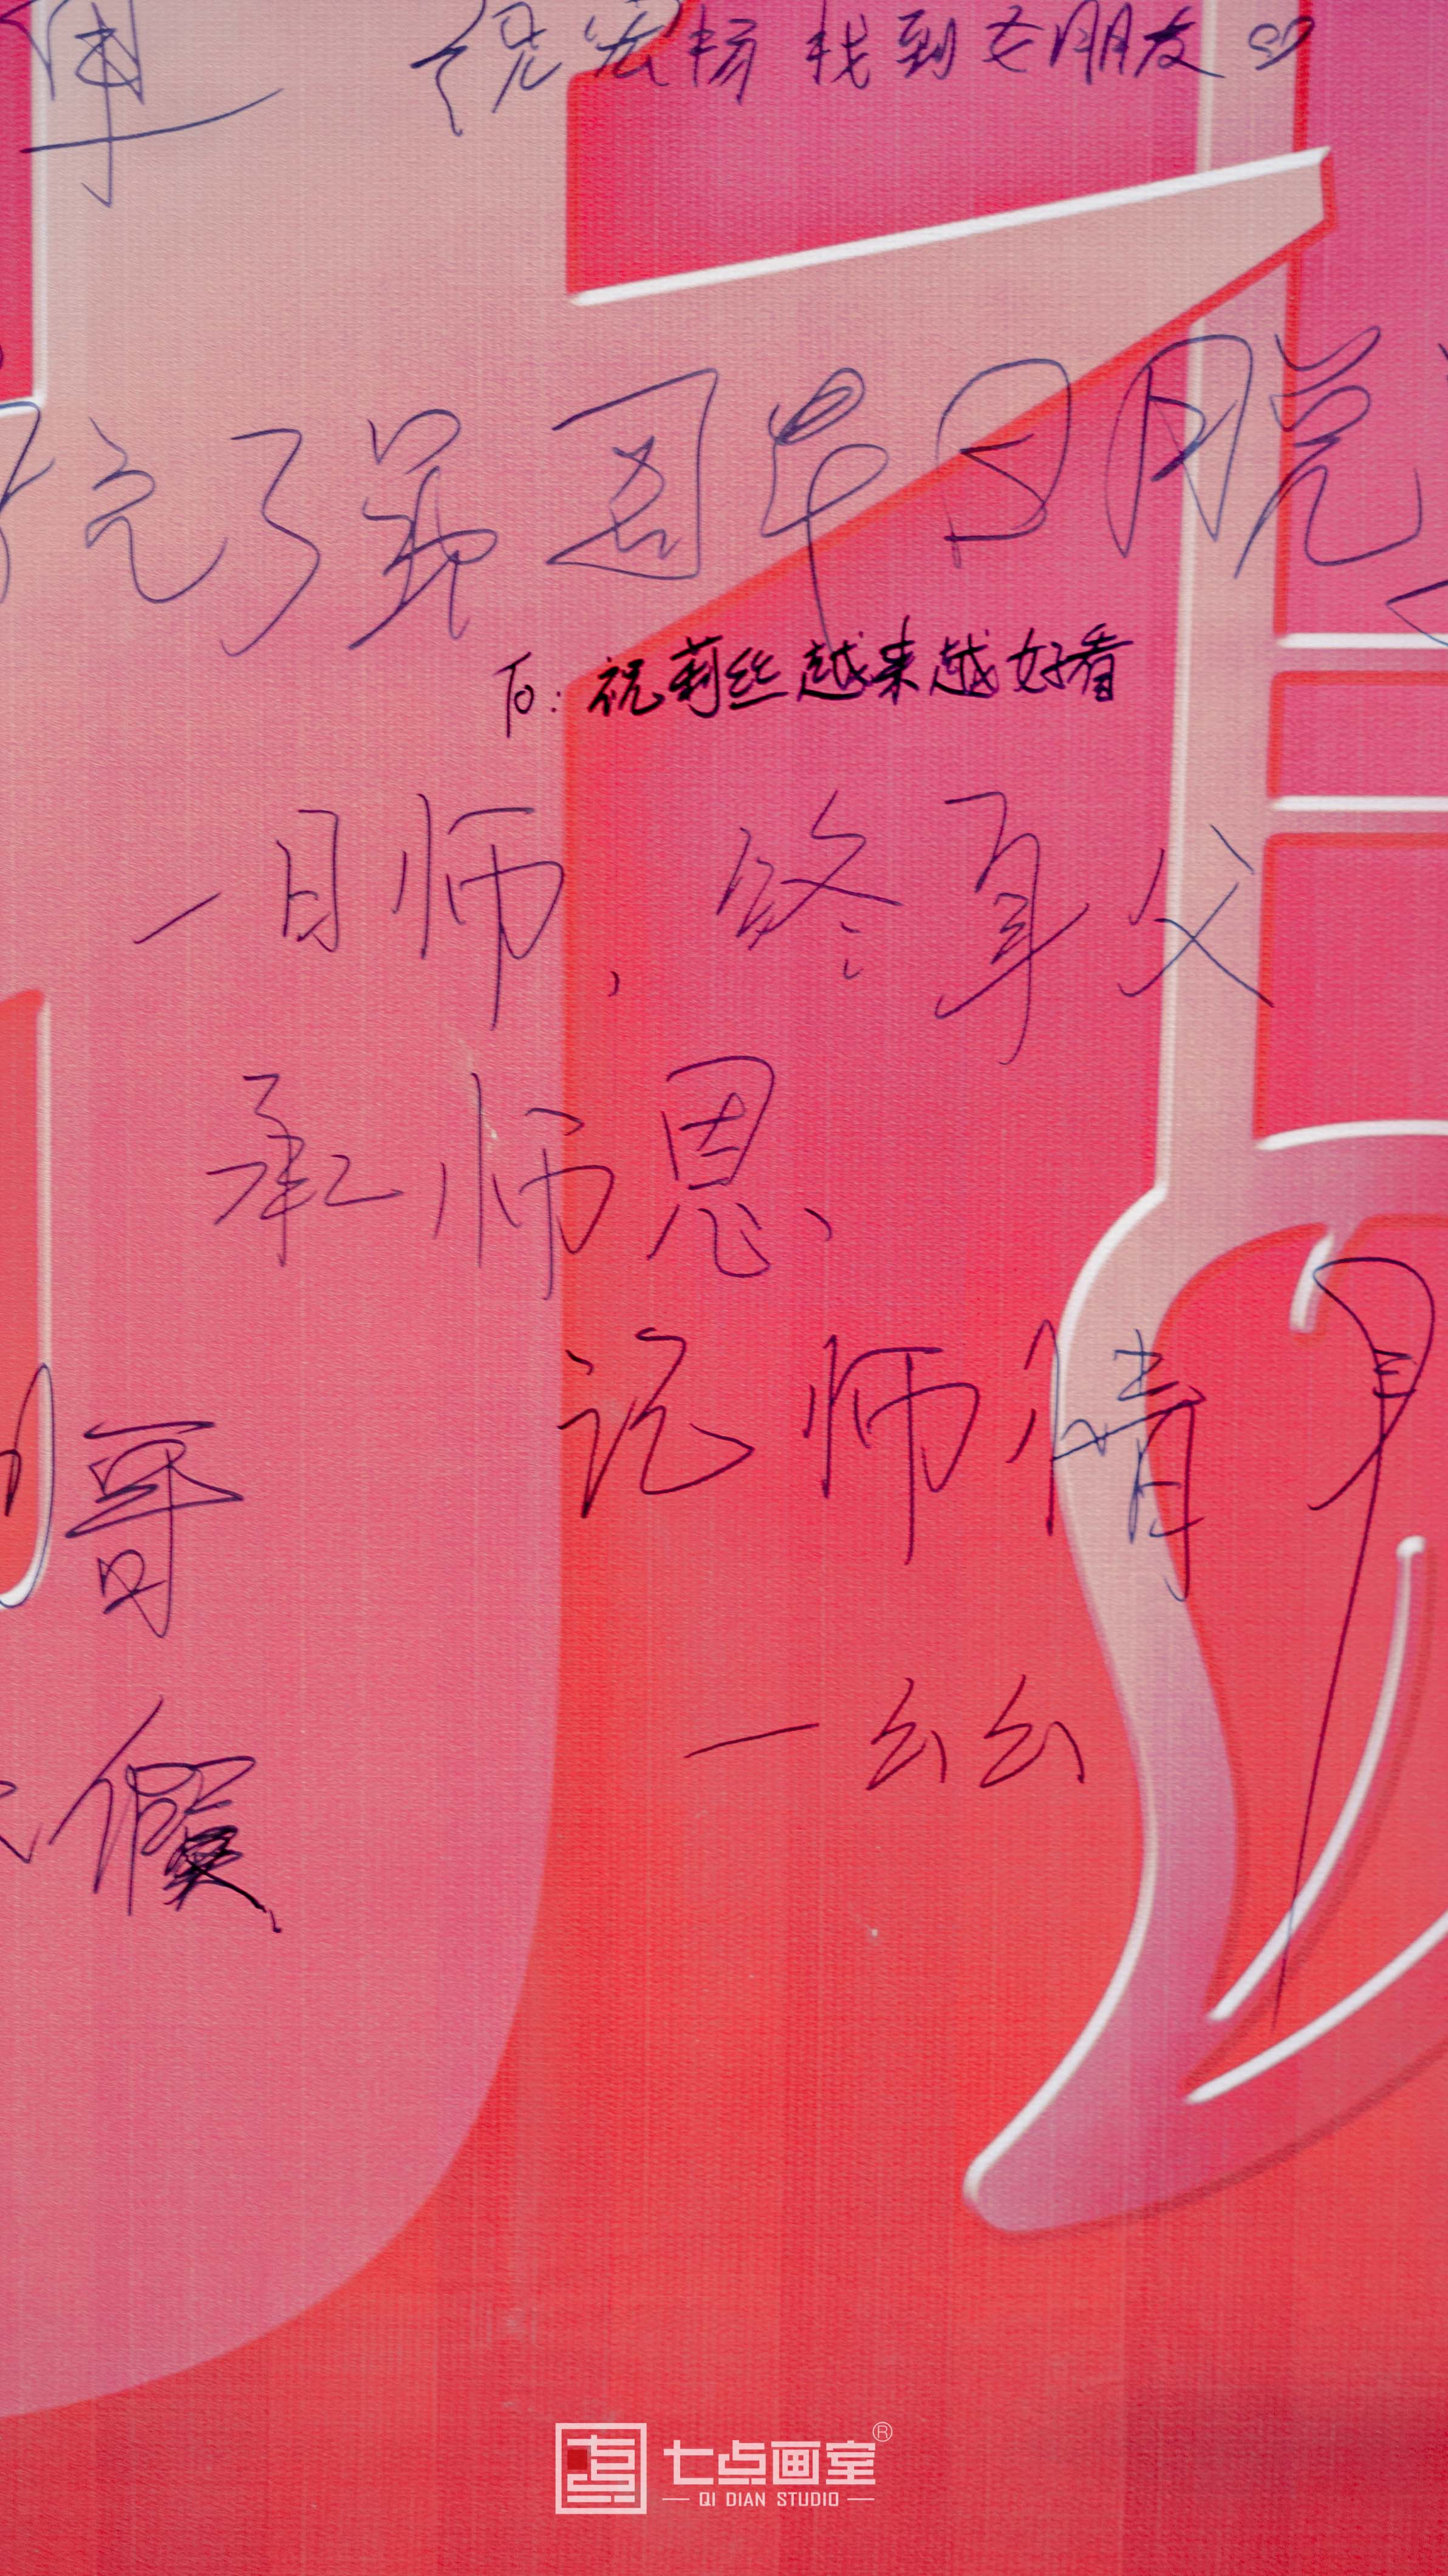 祝宏杨找到女朋友
早日脱
To: 祝莉丝越来越好看
一日师，终身父
承师恩、
记师情
哥
一幺幺
假
七点画室®
QI DIAN STUDIO